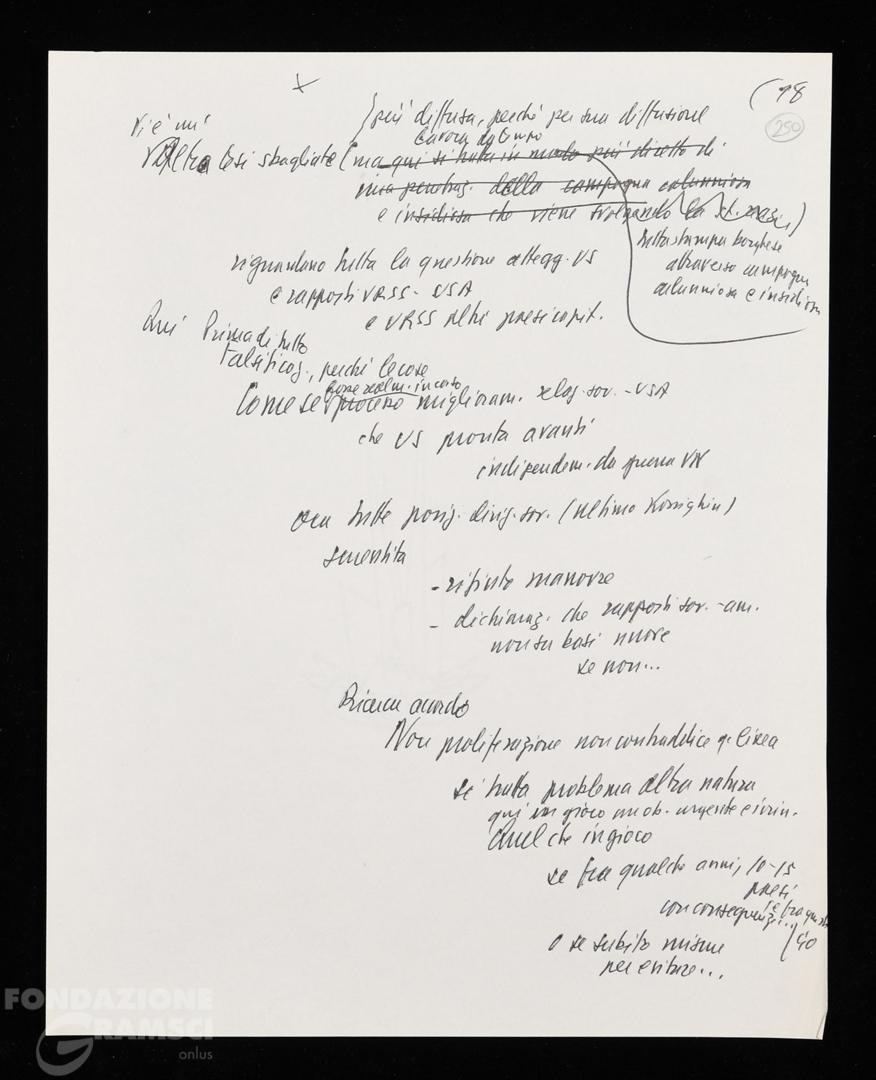 (18
250
} più diffusa, perché per sua diffusione
Vi è un'
lavora da tempo
Altra tesi sbagliata (ma qui si tratta in modo più diretto di
una penetraz. della campagna calunniosa
e insidiosa che viene svolgendo la st.
tutta stampa borghese
attraverso campagna
calunniosa e insidiosa
riguardano tutta la questione attegg. US
e rapporti URSS - USA
e URSS altri paesi capit.
Qui Prima di tutto
falsificaz., perché le cose
fosse realm. in corso
Come se processo miglioram. relaz. sov. - USA
che US pronta avanti
indipendem. da guerra VN
ora tutte posiz. dirig. sov. (ultimo Kossighin)
smentita
- rifiuto manovre
- dichiaraz. che rapporti sov. - am.
non su basi nuove
se non...
Ricerca accordo
Non proliferazione non contraddice q. linea
si tratta problema altra natura
qui in gioco
Quel che in gioco
se fra qualche anni, 10-15
paesi
con conseguenze...
o se subito misure
per evitare...
FONDAZIONE
GRAMSCI
onlus